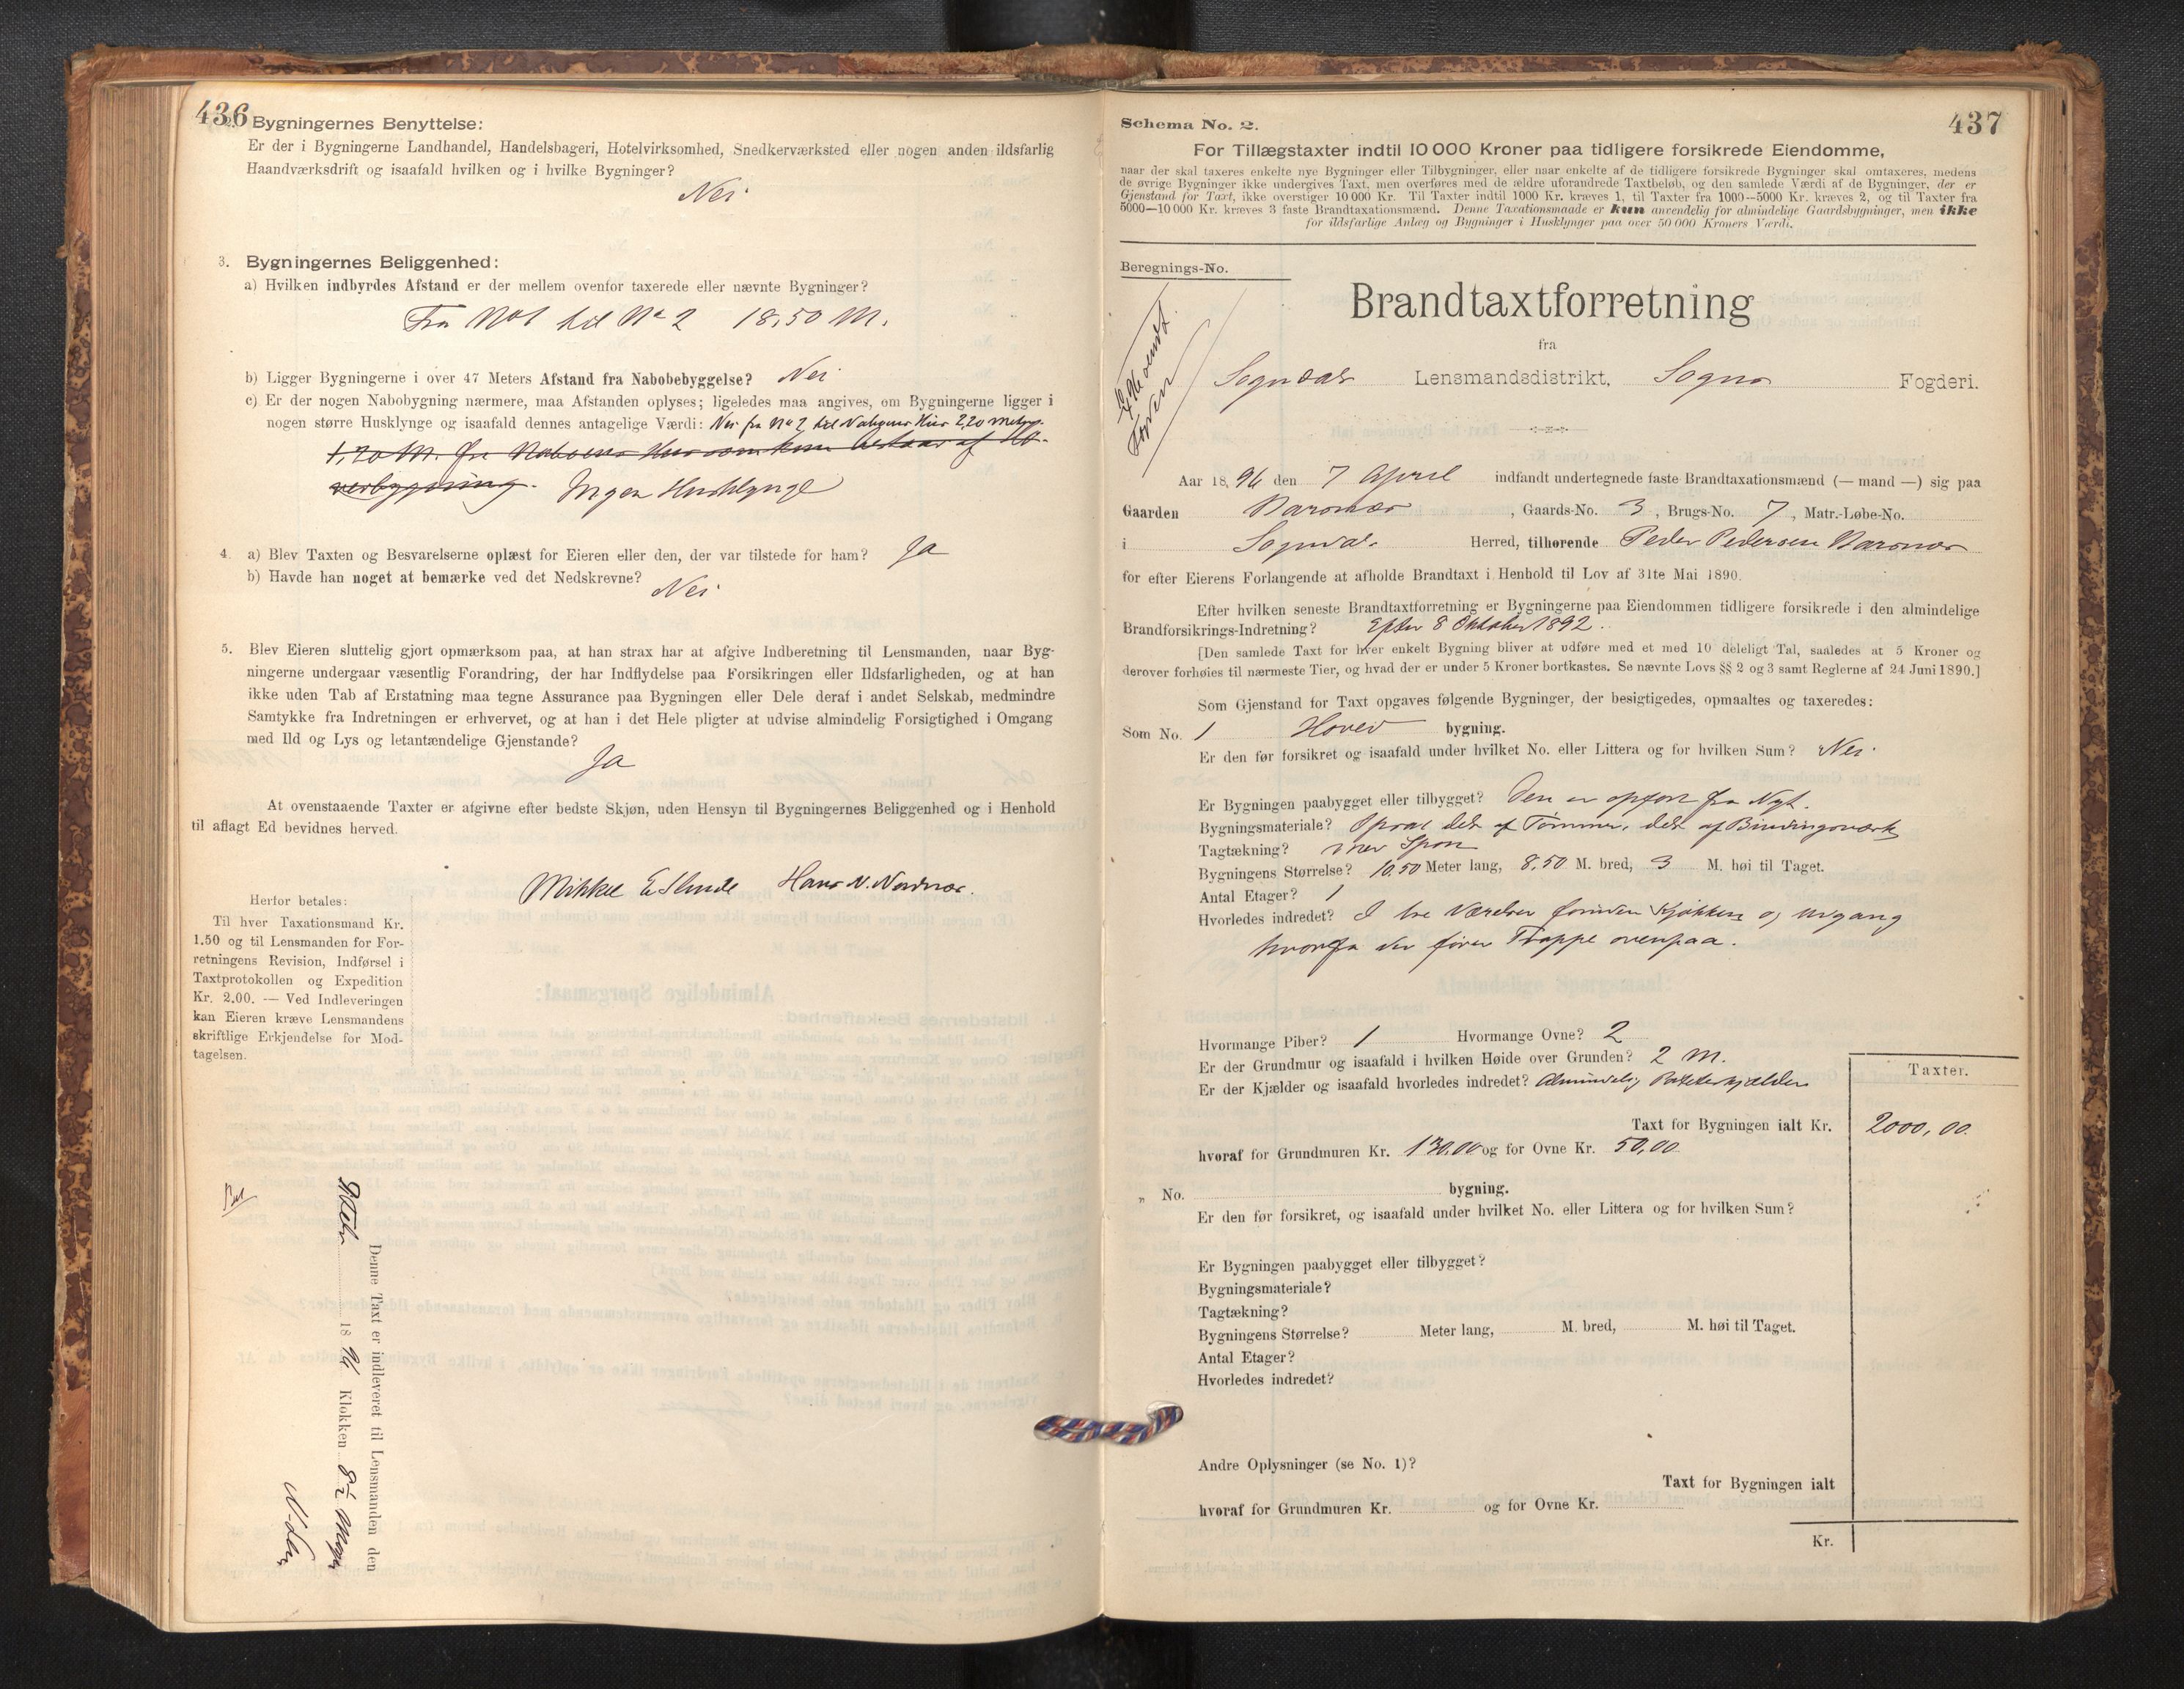 436
2. Bygningernes Benyttelse:
Er der i Bygningerne Landhandel, Handelsbageri, Hotelvirksomhed, Snedkerværksted eller nogen anden ildsfarlig
Haandværksdrift og isaafald hvilken og i hvilke Bygninger?
Nei
3. Bygningernes Beliggenhed:
a) Hvilken indbyrdes Afstand er der mellem ovenfor taxerede eller nævnte Bygninger?
Fra No 1 til No 2 18,50 M.
b) Ligger Bygningerne i over 47 Meters Afstand fra Nabobebyggelse? Nei
c) Er der nogen Nabobygning nærmere, maa Afstanden oplyses; ligeledes maa angives, om Bygningerne ligger i
nogen større Husklynge og isaafald dennes antagelige Værdi: Nei fra No 2 til Naboens Hus 2,20 Meter
1,70 M. fra Naboens Hus som kun bestaar af
Ingen Husklynge
4. a) Blev Taxten og Besvarelserne oplæst for Eieren eller den, der var tilstede for ham? Ja
b) Havde han noget at bemærke ved det Nedskrevne?
Nei
5. Blev Eieren sluttelig gjort opmærksom paa, at han strax har at afgive Indberetning til Lensmanden, naar Byg-
ningerne undergaar væsentlig Forandring, der har Indflydelse paa Forsikringen eller Ildsfarligheden, og at han
ikke uden Tab af Erstatning maa tegne Assurance paa Bygningen eller Dele deraf i andet Selskab, medmindre
Samtykke fra Indretningen er erhvervet, og at han i det Hele pligter at udvise almindelig Forsigtighed i Omgang
med Ild og Lys og letantændelige Gjenstande?
Ja
At ovenstaaende Taxter er afgivne efter bedste Skjøn, uden Hensyn til Bygningernes Beliggenhed og i Henhold
til aflagt Ed bevidnes herved.
Mikkel E Slinde Hans N. Nornæs.
Herfor betales:
Til hver Taxationsmand Kr.
1.50 og til Lensmanden for For-
retningens Revision, Indførsel i
Taxtprotokollen og Expedition
Kr. 2.00. — Ved Indleveringen
kan Eieren kræve Lensmandens
skriftlige Erkjendelse for Mod-
tagelsen.
Denne Taxt er indleveret til Lensmanden den
1896 Klokken 8½
437
Schema No. 2.
For Tillægstaxter indtil 10 000 Kroner paa tidligere forsikrede Eiendomme,
naar der skal taxeres enkelte nye Bygninger eller Tilbygninger, eller naar enkelte af de tidligere forsikrede Bygninger skal omtaxeres, medens
de øvrige Bygninger ikke undergives Taxt, men overføres med de ældre uforandrede Taxtbeløb, og den samlede Værdi af de Bygninger, der er
Gjenstand for Taxt, ikke overstiger 10 000 Kr. Til Taxter indtil 1000 Kr. kræves 1, til Taxter fra 1000—5000 Kr. kræves 2, og til Taxter fra
5000—10 000 Kr. kræves 3 faste Brandtaxationsmænd. Denne Taxationsmaade er kun anvendelig for almindelige Gaardsbygninger, men ikke
for ildsfarlige Anlæg og Bygninger i Husklynger paa over 50 000 Kroners Værdi.
Beregnings-No.
Brandtaxtforretning
fra
Sogndal Lensmandsdistrikt, Sogns Fogderi.
Aar 1896 den 7 April indfandt undertegnede faste Brandtaxationsmænd (— mand —) sig paa
Gaarden Barsnæs, Gaards-No. 3, Brugs-No. 7, Matr.-Løbe-No.
i Sogndal Herred, tilhørende Peder Pedersen Barsnæs
for efter Eierens Forlangende at afholde Brandtaxt i Henhold til Lov af 31te Mai 1890.
Efter hvilken seneste Brandtaxtforretning er Bygningerne paa Eiendommen tidligere forsikrede i den almindelige
Brandforsikrings-Indretning? Efter 8 Oktober 1892.
[Den samlede Taxt for hver enkelt Bygning bliver at udføre med et med 10 deleligt Tal, saaledes at 5 Kroner og
derover forhøies til nærmeste Tier, og hvad der er under 5 Kroner bortkastes. Se nævnte Lovs §§ 2 og 3 samt Reglerne af 24 Juni 1890.]
Som Gjenstand for Taxt opgaves følgende Bygninger, der besigtigedes, opmaaltes og taxeredes:
Som No. 1 Hoved bygning.
Er den før forsikret og isaafald under hvilket No. eller Littera og for hvilken Sum? Nei.
Er Bygningen paabygget eller tilbygget? Den er opført fra Nyt.
Bygningsmateriale? Opsat dels af Tømmer, dels af Bindingsværk
Tagtækning? med Spon
Bygningens Størrelse? 10,50 Meter lang, 8,50 M. bred, 3 M. høi til Taget.
Antal Etager? 1
Hvorledes indredet? I tre Værelser foruden Kjøkken og Udgang
hvorfra der fører Trappe ovenpaa.
Hvormange Piber? 1 Hvormange Ovne? 2
Er der Grundmur og isaafald i hvilken Høide over Grunden? 2 M.
Er der Kjælder og isaafald hvorledes indredet? Almindelig Potetkjælder
Taxter.
Taxt for Bygningen ialt Kr. 2000,00.
hvoraf for Grundmuren Kr. 130,00 og for Ovne Kr. 50,00
„ No. bygning.
Er den før forsikret, og isaafald under hvilket No. eller Littera og for hvilken Sum?
Er Bygningen paabygget eller tilbygget?
Bygningsmateriale?
Tagtækning?
Bygningens Størrelse? Meter lang, M. bred, M. høi til Taget.
Antal Etager?
Hvorledes indredet?
Andre Oplysninger (se No. 1)?
Taxt for Bygningen ialt
hvoraf for Grundmuren Kr. og for Ovne Kr.
Kr.